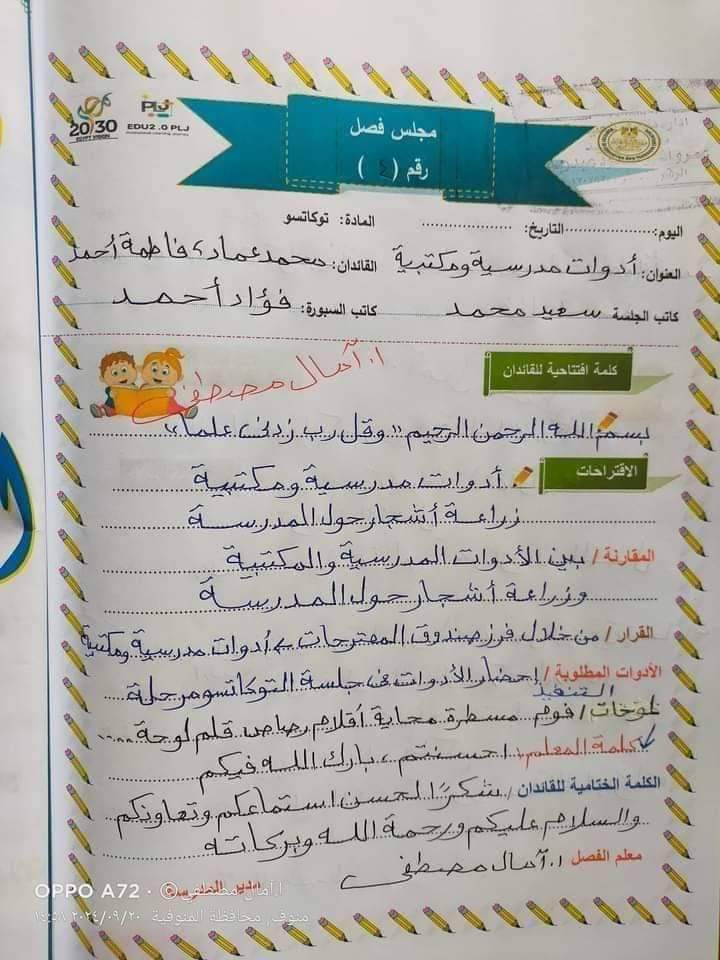 2030
EGYPT VISION
PLJ
EDU2.0 PLJ
مجلس فصل
رقم (٤)
اليوم:..................التاريخ: .................. المادة: توكاتسو
العنوان: أدوات مدرسية ومكتبية القائدان: محمد عماد، فاطمة أحمد
كاتب الجلسة سعيد محمد كاتب السبورة: فؤاد أحمد
كلمة افتتاحية للقائدان
ا. آمال مصطفى
بسم الله الرحمن الرحيم "وقل رب زدنى علما"
الاقتراحات
أدوات مدرسية ومكتبية
زراعة أشجار حول المدرسة
المقارنة / بين الأدوات المدرسية والمكتبية
وزراعة أشجار حول المدرسة
القرار / من خلال فرز صندوق المقترحات ← أدوات مدرسية ومكتبية
الأدوات المطلوبة / إحضار الأدوات فى جلسة التوكاتسو مرحلة
التنفيذ
لوحات / فوم مسطرة محاية أقلام رصاص قلم لوحة ....
كلمة المعلم / احسنتم، بارك الله فيكم
الكلمة الختامية للقائدان / شكرًا لحسن استماعكم وتعاونكم
والسلام عليكم ورحمة الله وبركاته
معلم الفصل ا. آمال مصطفى
مدير المدرسة
OPPO A72 · © ا.آمال مصطفي
منوف, محافظة المنوفية ٢٠٢٤/٠٩/٢٠ ١٤:٥١